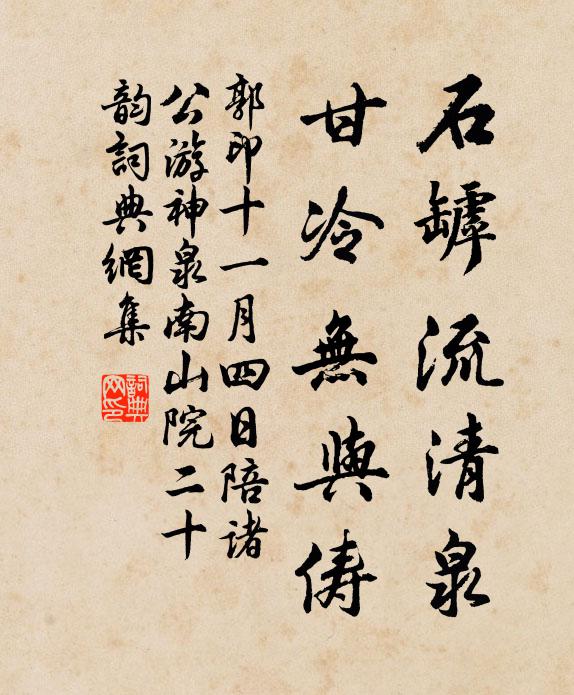 石罅流清泉
甘冷無與儔
郭印十一月四日陪诸
公游神泉南山院二十
韵詞典網集
詞典
网印